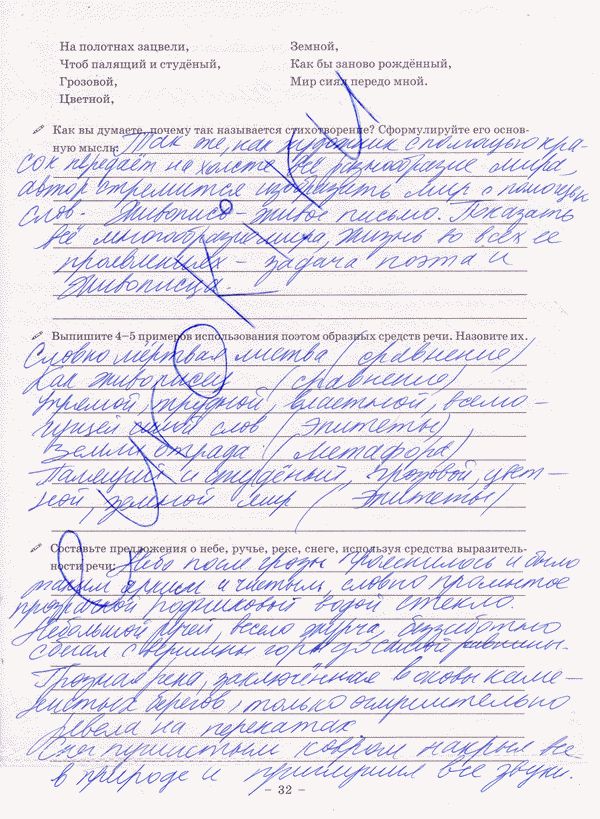 На полотнах зацвели,
Чтоб палящий и студёный,
Грозовой,
Цветной,
Земной,
Как бы заново рождённый,
Мир сиял передо мной.
Как вы думаете, почему так называется стихотворение? Сформулируйте его основ-
ную мысль: Так же, как художник с помощью кра-
сок передаёт на холсте всё разнообразие мира,
автор стремится изобразить мир с помощью
слов. Живопись – живое письмо. Показать
всё многообразие мира, жизнь во всех её
проявлениях – задача поэта и
живописца.
Выпишите 4–5 примеров использования поэтом образных средств речи. Назовите их.
Словно мёртвая листва (сравнение)
Как живописец (сравнение)
Упрямой, трудной, властной, всемо-
гущей силой слов (Эпитеты)
Земли отрада (Метафора)
Палящий и студёный, грозовой, цвет-
ной, земной мир (Эпитеты)
Составьте предложения о небе, ручье, реке, снеге, используя средства выразитель-
ности речи: Небо после грозы прояснилось и было
таким ярким и чистым, словно промытое
прозрачной родниковой водой стекло.
Небольшой ручей, весело журча, беззаботно
сбегал с вершины горы до самой равнины.
Грозная река, заключённая в оковы каме-
нистых берегов, только оглушительно
ревела на перекатах
Снег пушистым ковром накрыл все
в природе и приглушил все звуки.
– 32 –